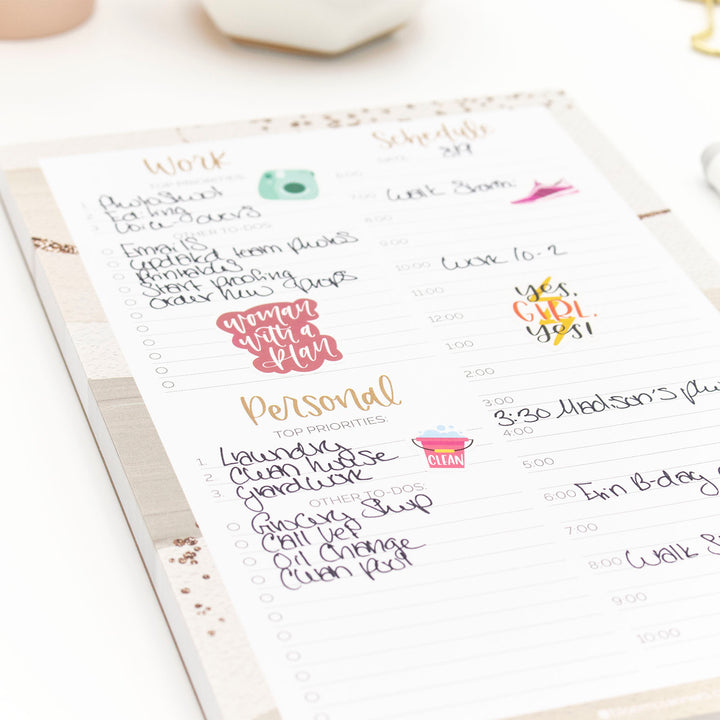 Work
TOP PRIORITIES:
1 Photoshoot
2 Editing
3 Voice-overs
OTHER TO-DOS:
Emails
Updated team photos
Printables
Start Proofing
Order new props
woman
with a
plan
Personal
TOP PRIORITIES:
1 Laundry
2 Clean house
3 Yardwork
CLEAN
OTHER TO-DOS:
Grocery Shop
Call Vet
Oil Change
Clean pool
Schedule
DATE: 8/9
6:00
7:00 Walk Storm
8:00
9:00
10:00 Work 10-2
11:00
yes,
GIRL,
yes!
12:00
1:00
2:00
3:00
3:30 Madison's
4:00
5:00
6:00 Erin B-day
7:00
8:00 Walk
9:00
10:00